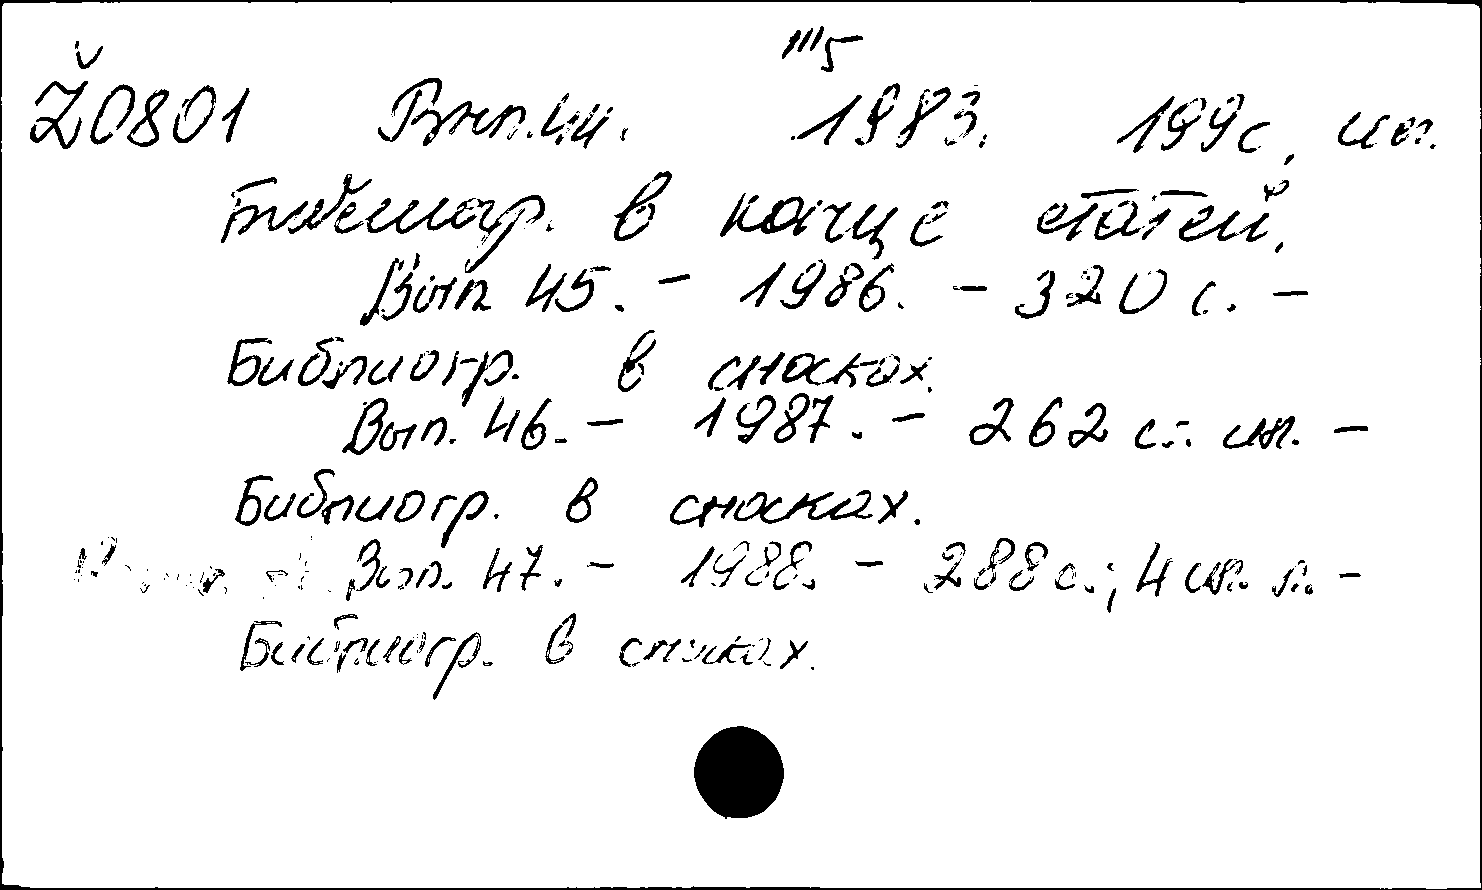 '''5
Ž0801 Вып.44. 1983. 199с, ил.
Библиогр. в конце статей.
Вып 45. – 1986. – 320 с. –
Библиогр. в сносках.
Вып. 46. – 1987. – 262 с.: ил. –
Библиогр. в сносках.
Вып. 47. – 1988. – 288 с.; 4 ил. л. –
Библиогр. в сносках.